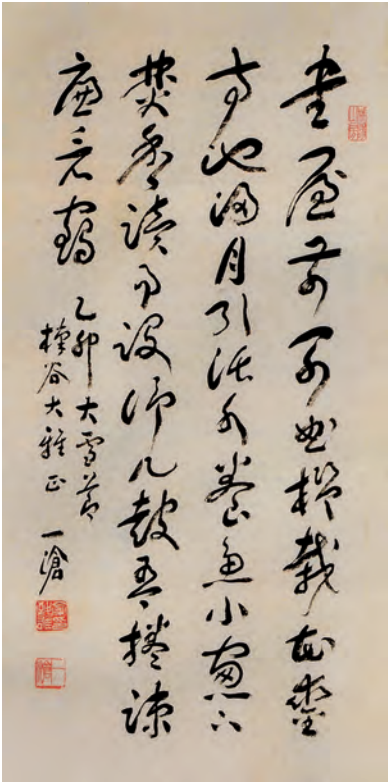 書屋前列曲檻栽花鑿
方池浸月引活水養魚小窓下
焚香讀書設淨几鼓琴捲疎
簾看鶴
乙卯大雪節
谷大雅正 一滄